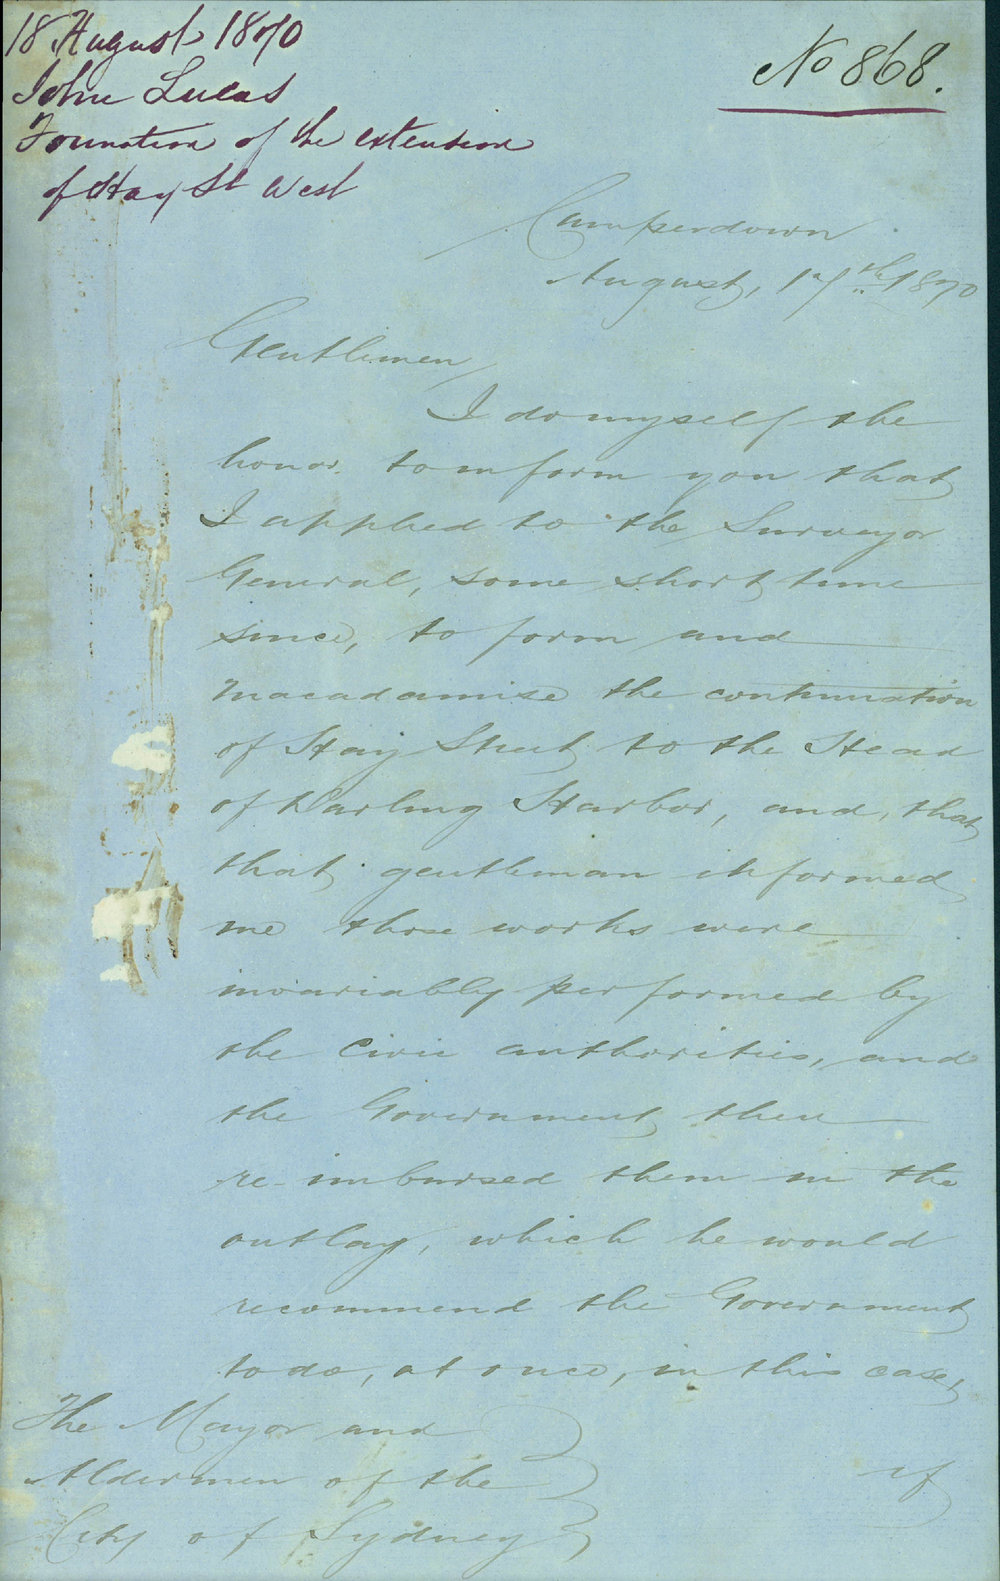 18 August 1870
John Lucas
Formation of the extension
of Hay St West
No 868.
Camperdown
August, 17th 1870
Gentlemen
I do myself the
honor to inform you that
I applied to the Surveyor
General, some short time
since, to form and
Macadamise the continuation
of Hay Street to the Head
of Darling Harbor, and, that
that gentleman informed
me those works were
invariably performed by
the Civic authorities, and
the Government then
re-imbursed them in the
outlay, which he would
recommend the Government
to do, at once, in this case,
if
The Mayor and
Aldermen of the
City of Sydney